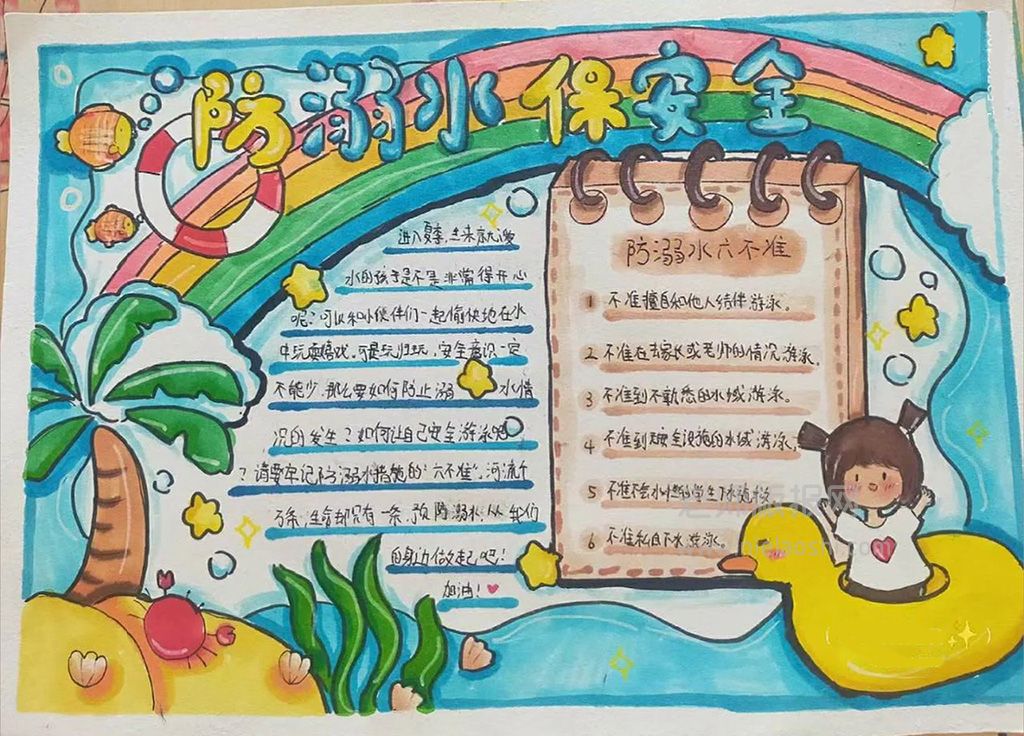 防溺水保安全
进入夏季,生来就 爱
水的孩子是不是非常得开心
呢?可以和小伙伴们一起愉快地在水
中玩耍嬉戏.可是玩归玩,安全意识一定
不能少.那么要如何防止溺 水情
况的发生?如何让自己安全游泳吧
?请要牢记防溺水措施的"六不准".河流千
万条,生命却只有一条.预防溺水,从我们
的身边做起吧!
加油!
防溺水六不准
1 不准擅自和他人结伴游泳。
2 不准在无家长或老师的情况游泳.
3 不准到不熟悉的水域游泳。
4 不准到无安全设施的水域游泳,
5 不准不会水性的学生下水
6 不准私自下水游泳。